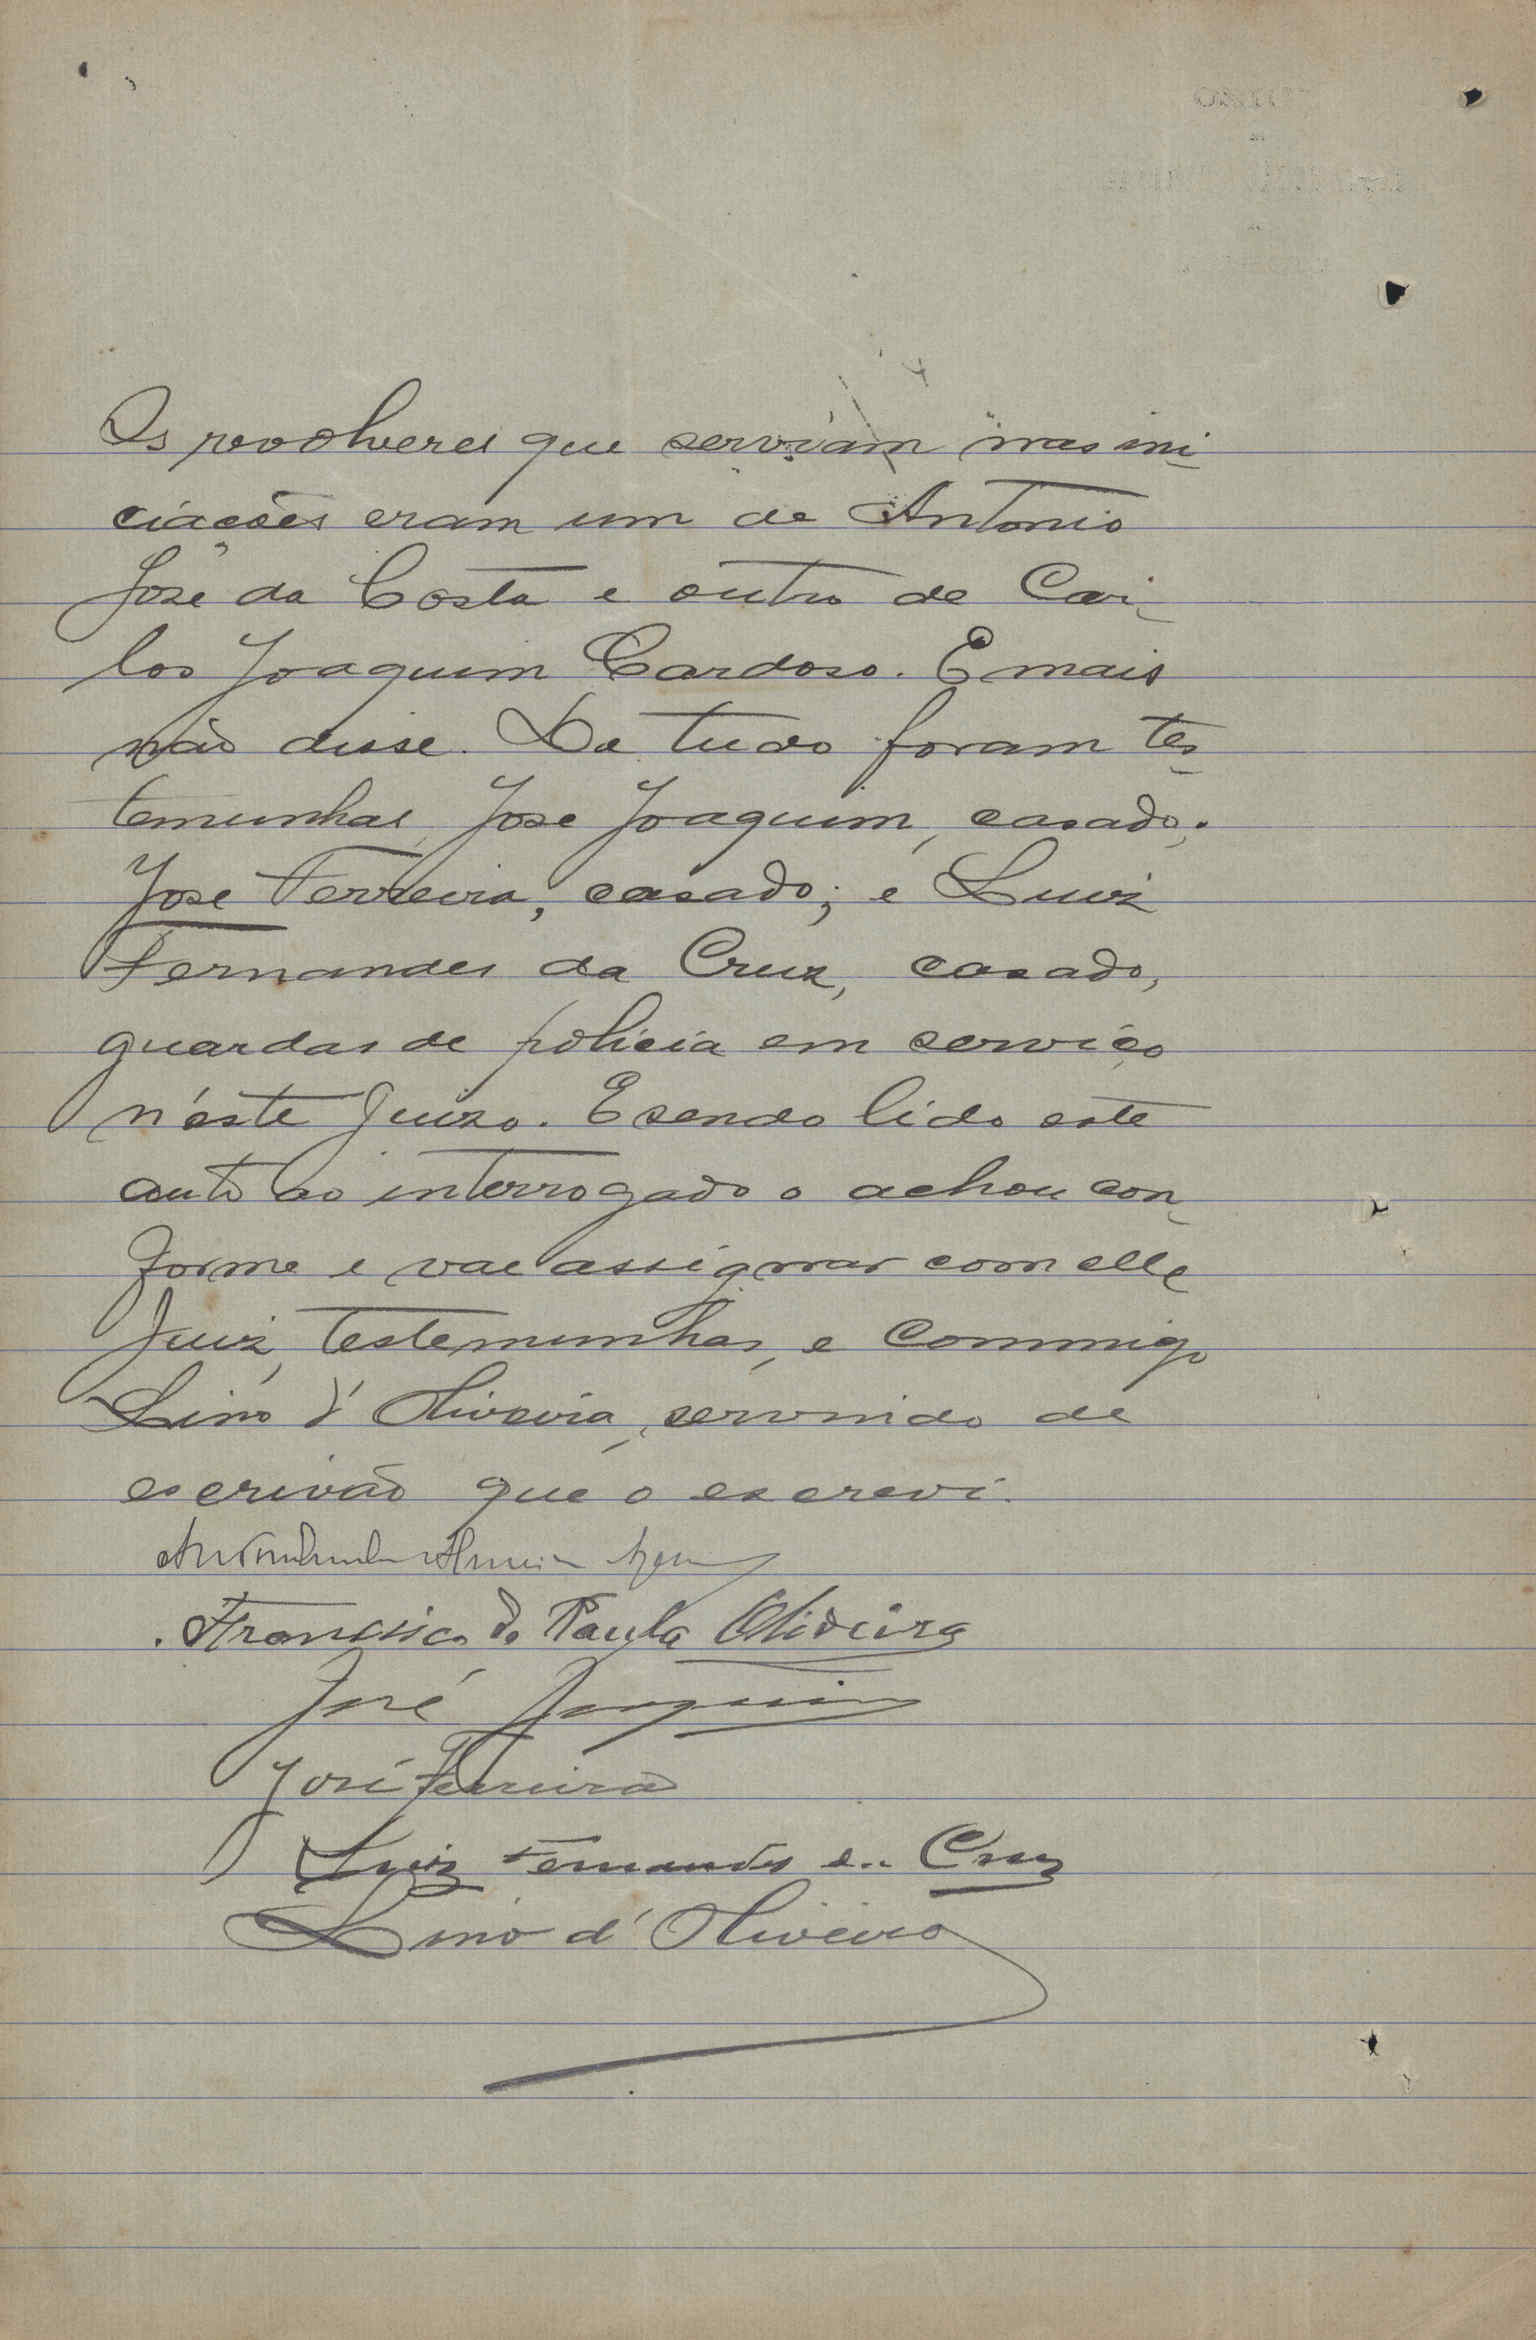 Os revolveres que serviam nas ini-
ciações eram um de Antonio
José da Costa e outro de Car-
los Joaquim Cardoso. E mais
não disse. De tudo foram tes-
temunhas, Jose Joaquim, casado;
Jose Ferreira, casado; e Luiz
Fernandes da Cruz, casado,
guardas de policia em serviço
n'este Juizo. E sendo lido este
auto ao interrogado o achou con-
forme e vae assignar com elle
Juiz, testemunhas, e commigo
Lino d'Oliveira, servindo de
escrivão que o escrevi.
Francisco de Paula Oliveira
José Joaquim
José Ferreira
Luiz Fernandes da Cruz
Lino d'Oliveira